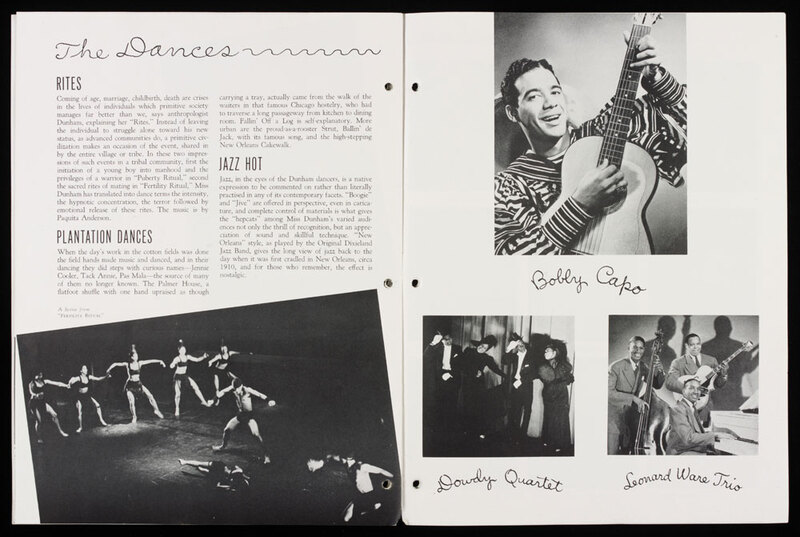 The Dances
RITES
Coming of age, marriage, childbirth, death are crises
in the lives of individuals which primitive society
manages far better than we, says anthropologist
Dunham, explaining her "Rites." Instead of leaving
the individual to struggle alone toward his new
status, as advanced communities do, a primitive civ-
ilization makes an occasion of the event, shared in
by the entire village or tribe. In these two impres-
sions of such events in a tribal community, first the
initiation of a young boy into manhood and the
privileges of a warrior in "Puberty Ritual," second
the sacred rites of mating in "Fertility Ritual," Miss
Dunham has translated into dance terms the intensity,
the hypnotic concentration, the terror followed by
emotional release of these rites. The music is by
Paquita Anderson.
PLANTATION DANCES
When the day's work in the cotton fields was done
the field hands made music and danced, and in their
dancing they did steps with curious names—Jennie
Cooler, Tack Annie, Pas Mala—the source of many
of them no longer known. The Palmer House, a
flatfoot shuffle with one hand upraised as though
carrying a tray, actually came from the walk of the
waiters in that famous Chicago hostelry, who had
to traverse a long passageway from kitchen to dining
room. Fallin' Off a Log is self-explanatory. More
urban are the proud-as-a-rooster Strut, Ballin' de
Jack, with its famous song, and the high-stepping
New Orleans Cakewalk.
JAZZ HOT
Jazz, in the eyes of the Dunham dancers, is a native
expression to be commented on rather than literally
practised in any of its contemporary facets. "Boogie"
and "Jive" are offered in perspective, even in carica-
ture, and complete control of materials is what gives
the "hepcats" among Miss Dunham's varied audi-
ences not only the thrill of recognition, but an appre-
ciation of sound and skillful technique. "New
Orleans" style, as played by the Original Dixieland
Jazz Band, gives the long view of jazz back to the
day when it was first cradled in New Orleans, circa
1910, and for those who remember, the effect is
nostalgic.
A Scene from
"FERTILITY RITUAL"
Bobby Capo
Dowdy Quartet
Leonard Ware Trio